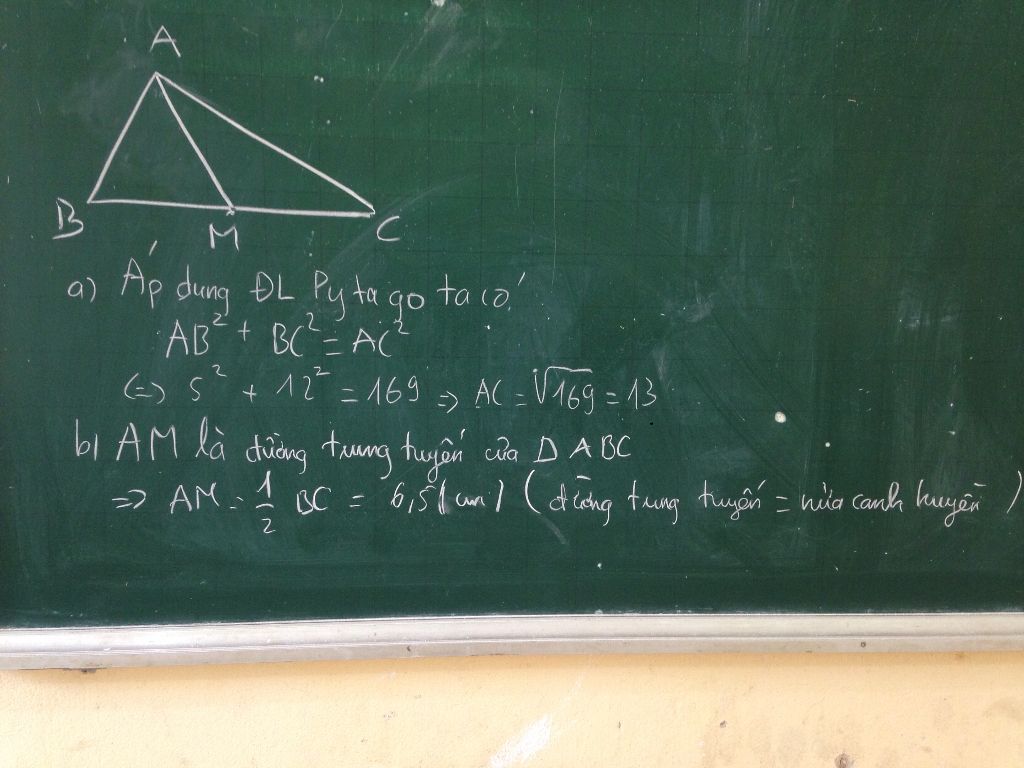 A
B
M
C
a) Áp dung ĐL Pytago ta có
AB² + BC² = AC²
(=) 5² + 12² = 169 => AC = √169 = 13
b) AM là đường trung tuyến của D ABC
=> AM = 1/2 BC = 6,5 (cm) (đường trung tuyến = nửa canh huyền)